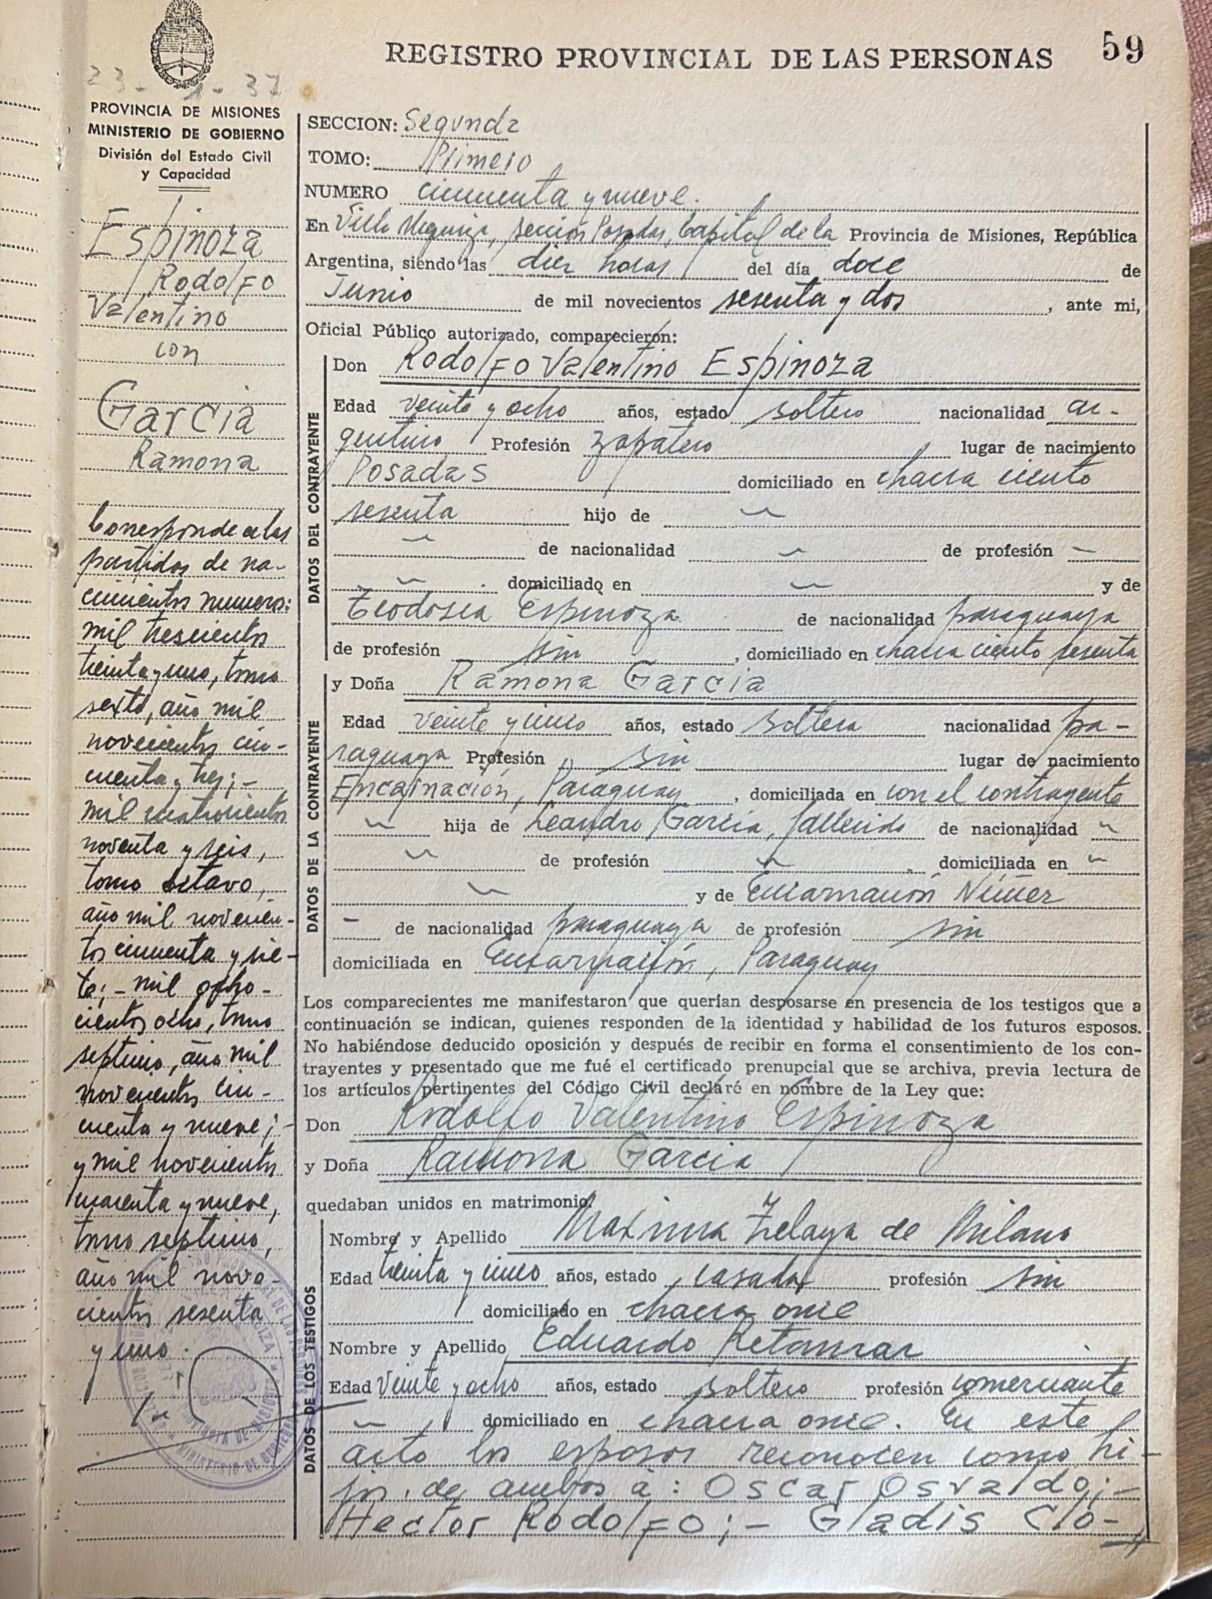 REGISTRO PROVINCIAL DE LAS PERSONAS
59
23 - 1 - 37
PROVINCIA DE MISIONES
MINISTERIO DE GOBIERNO
División del Estado Civil
y Capacidad
Espinoza
Rodolfo
Valentino
con
Garcia
Ramona
Corresponde a las
partidas de na-
cimientos numeros:
mil trescientos
treinta y uno, tomo
sexto, año mil
novecientos cin-
cuenta y tres;-
mil cuatrocientos
noventa y seis,
tomo octavo,
año mil novecien-
tos cincuenta y sie-
te;- mil ocho-
cientos ocho, tomo
septimo, año mil
novecientos cin-
cuenta y nueve;-
y mil novecientos
cuarenta y nueve,
tomo septimo,
año mil nove-
cientos sesenta
y uno.
SECCION: Segunda
TOMO: Primero
NUMERO cincuenta y nueve.
En Villa Urquiza, sección Posadas, Capital de la Provincia de Misiones, República
Argentina, siendo las diez horas del día doce de
Junio de mil novecientos sesenta y dos, ante mi,
Oficial Público autorizado, comparecieron:
DATOS DEL CONTRAYENTE
Don Rodolfo Valentino Espinoza
Edad veinte y ocho años, estado soltero nacionalidad ar-
gentino Profesión zapatero lugar de nacimiento
Posadas domiciliado en chacra ciento
sesenta hijo de
de nacionalidad de profesión
domiciliado en y de
Teodosia Espinoza de nacionalidad paraguaya
de profesión sin, domiciliado en chacra ciento sesenta
DATOS DE LA CONTRAYENTE
y Doña Ramona Garcia
Edad veinte y cinco años, estado soltera nacionalidad pa-
raguaya Profesión sin lugar de nacimiento
Encarnación, Paraguay, domiciliada en con el contrayente
hija de Leandro Garcia, fallecido de nacionalidad
de profesión domiciliada en
y de Encarnación Núñez
- de nacionalidad paraguaya de profesión sin
domiciliada en Encarnación, Paraguay
Los comparecientes me manifestaron que querían desposarse en presencia de los testigos que a
continuación se indican, quienes responden de la identidad y habilidad de los futuros esposos.
No habiéndose deducido oposición y después de recibir en forma el consentimiento de los con-
trayentes y presentado que me fué el certificado prenupcial que se archiva, previa lectura de
los artículos pertinentes del Código Civil declaré en nombre de la Ley que:
Don Rodolfo Valentino Espinoza
y Doña Ramona Garcia
quedaban unidos en matrimonio.
DATOS DE LOS TESTIGOS
Nombre y Apellido Maxima Zelaya de Milano
Edad treinta y cinco años, estado casada profesión sin
domiciliado en chacra once
Nombre y Apellido Eduardo Retamar
Edad veinte y ocho años, estado soltero profesión comerciante
domiciliado en chacra once. En este
acto los esposos reconocen como hi-
jos de ambos a: Oscar Osvaldo;-
Hector Rodolfo;- Gladis Clo-